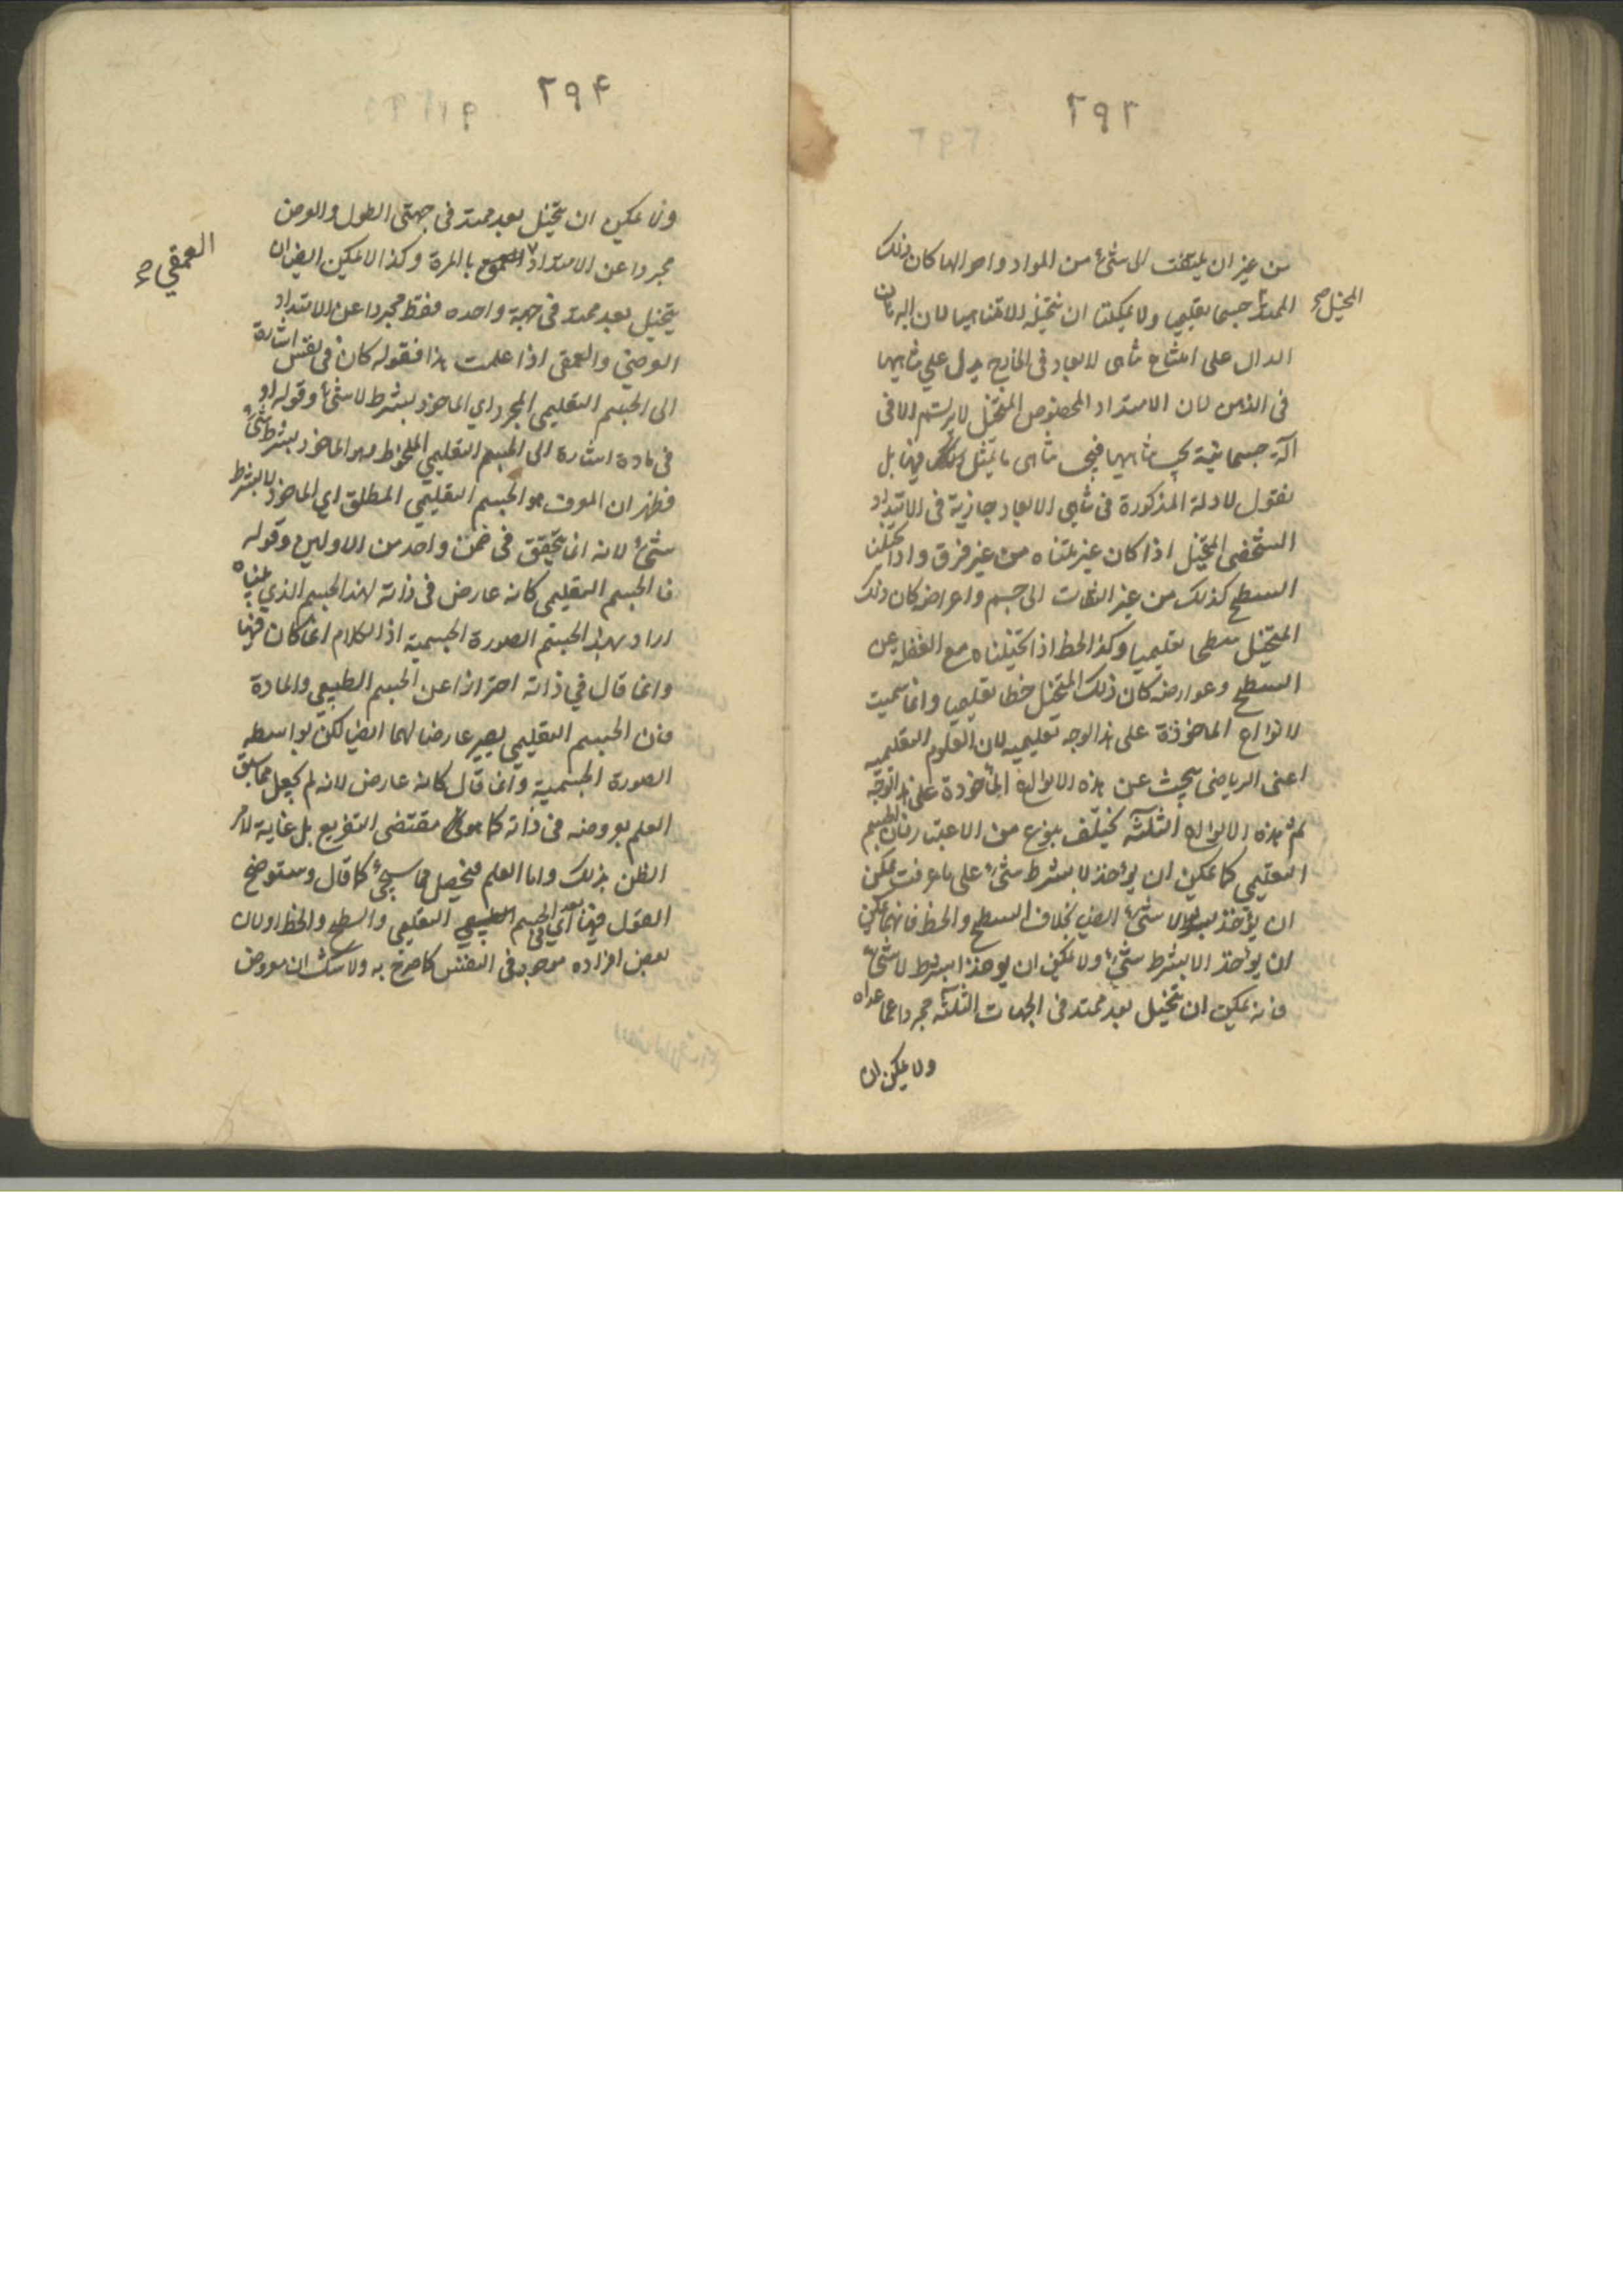 ٢٩٣
من غير ان يلتفت الى شئ من المواد واحوالها كان ذلك
المتخيل صح
الممتد جسما تعليميا ولا يمكننا ان نتخيله الا متناهيا لان البرهان
الدال على امتناع لا تناهى الابعاد فى الخارج يدل على تناهيها
فى الذهن لان الامتداد المخصوص المتخيل لا يرتسم الا فى
آلة جسمانية يجب تناهيها فيجب تناهى ما يتمثل فيها بل
نقول الادلة المذكورة فى تناهى الابعاد جارية فى الامتداد
الشخصى المتخيل اذا كان غير متناه من غير فرق واذا تخيلنا
السطح كذلك من غير التفات الى جسم واعراضه كان ذلك
المتخيل سطحا تعليميا وكذا الخط اذا تخيلناه مع الغفلة عن
السطح وعوارضه كان ذلك المتخيل خطا تعليميا وانما سميت
الانواع الماخوذة على هذا الوجه تعليمية لان العلوم التعليمية
اعنى الرياضى يبحث عن هذه الانواع الماخوذة على هذا الوجه
ثم هذه الانواع الثلثه تختلف بنوع من الاعتبار فان الجسم
التعليمى كما يمكن ان يؤخذ لا بشرط شئ على ما عرفت يمكن
ان يؤخذ بشرط لا شئ ايضا بخلاف السطح والخط فانهما يمكن
ان يؤخذ الا بشرط شئ ولا يمكن ان يؤخذا بشرط لا شئ
فانه يمكن ان يتخيل بعد ممتد فى الجهات الثلثه مجردا عما عداه
ولا يمكن ان
٢٩٤
ولا يمكن ان يتخيل بعد ممتد فى جهتى الطول والعرض
مجردا عن الامتداد بالمرة وكذا لا يمكن ايضا ان
العمقي صح
يتخيل بعد ممتد فى جهة واحده فقط مجردا عن الامتداد
العرضى والعمقى اذا علمت هذا فقوله كان فى نفس اشارة
الى الجسم التعليمى المجرد اي الماخوذ بشرط لا شئ وقوله او
فى مادة اشارة الى الجسم التعليمي الملحوظ وهو الماخوذ بشرط شئ
فظهر ان المعرف هو الجسم التعليمى المطلق اي الماخوذ لا بشرط
شئ لانه انما يتحقق فى ضمن واحد من الاولين وقوله
فالجسم التعليمى كانه عارض فى ذاته لهذا الجسم الذي بيناه
اراد بهذا الجسم الصورة الجسمية اذ الكلام انما كان فيها
وانما قال في ذاته احترازا عن الجسم الطبيعي والمادة
فان الجسم التعليمي يصير عارضا لهما ايضا لكن بواسطه
الصورة الجسمية وانما قال كانه عارض لانه لم يجعل مما سبق
العلم بعروضه فى ذاته كما هو مقتضى التفريع بل غاية الامر
الظن بذلك واما العلم فيحصل مما سيجئ كما قال وستوضح
القول فيهما بعد اي فى الجسم التعليمي والسطح والخط اولان
بعض افراده موجود فى النفس كما صرح به ولا شك ان معروض